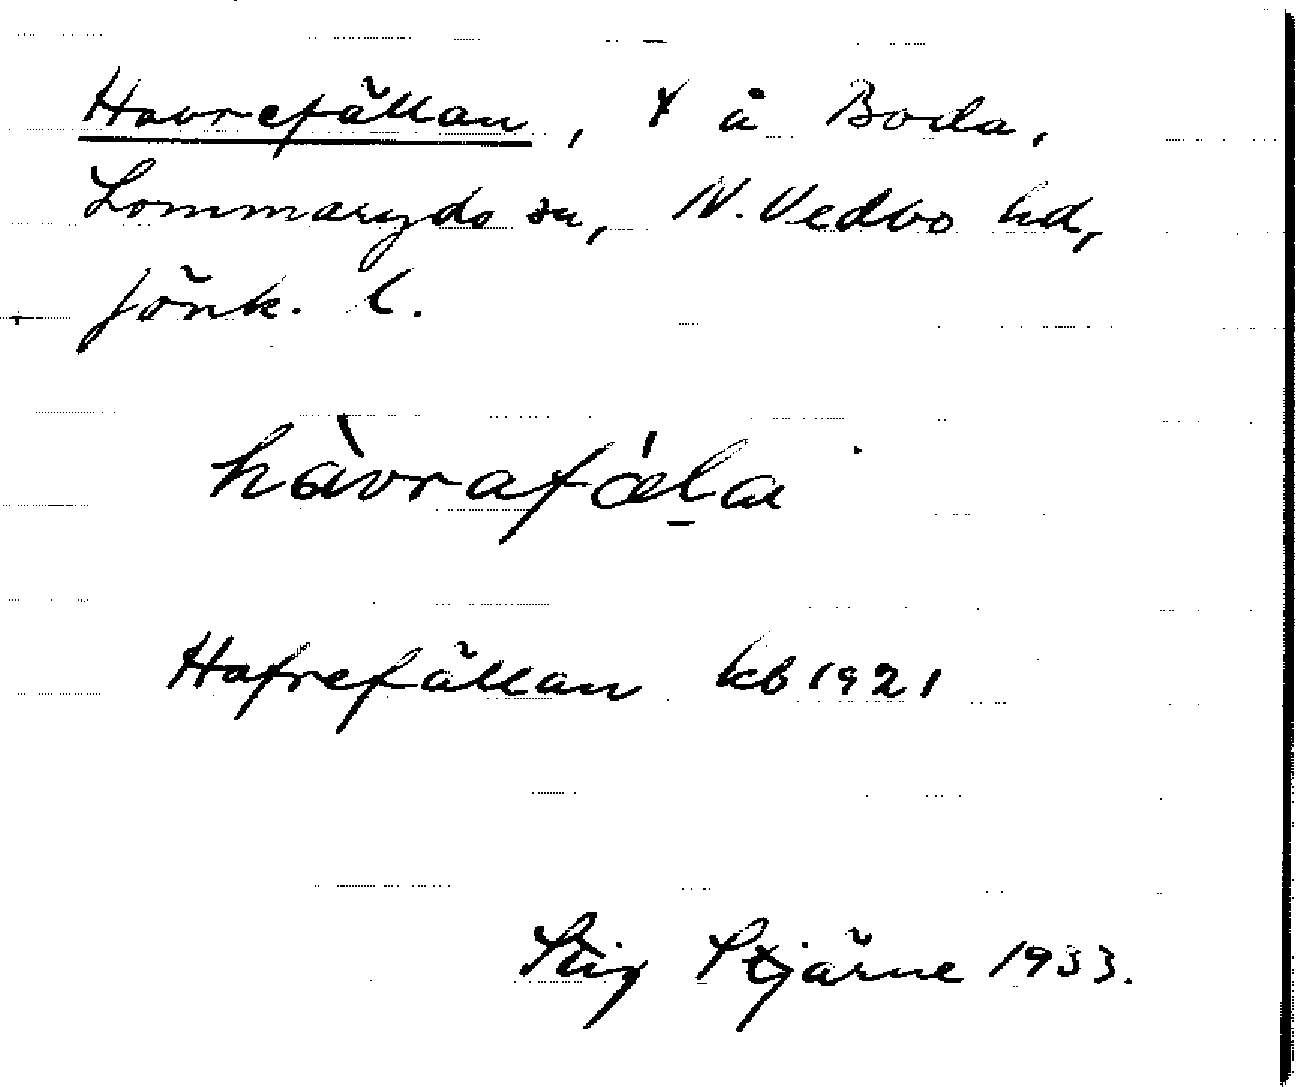 Havrefällan, ɤ å Boda,
Lommaryds sn, N. Vedbo hd,
Jönk. l.
hàvrafǽla
Hafrefällan kb 1921
Stig Stjärne 1933.